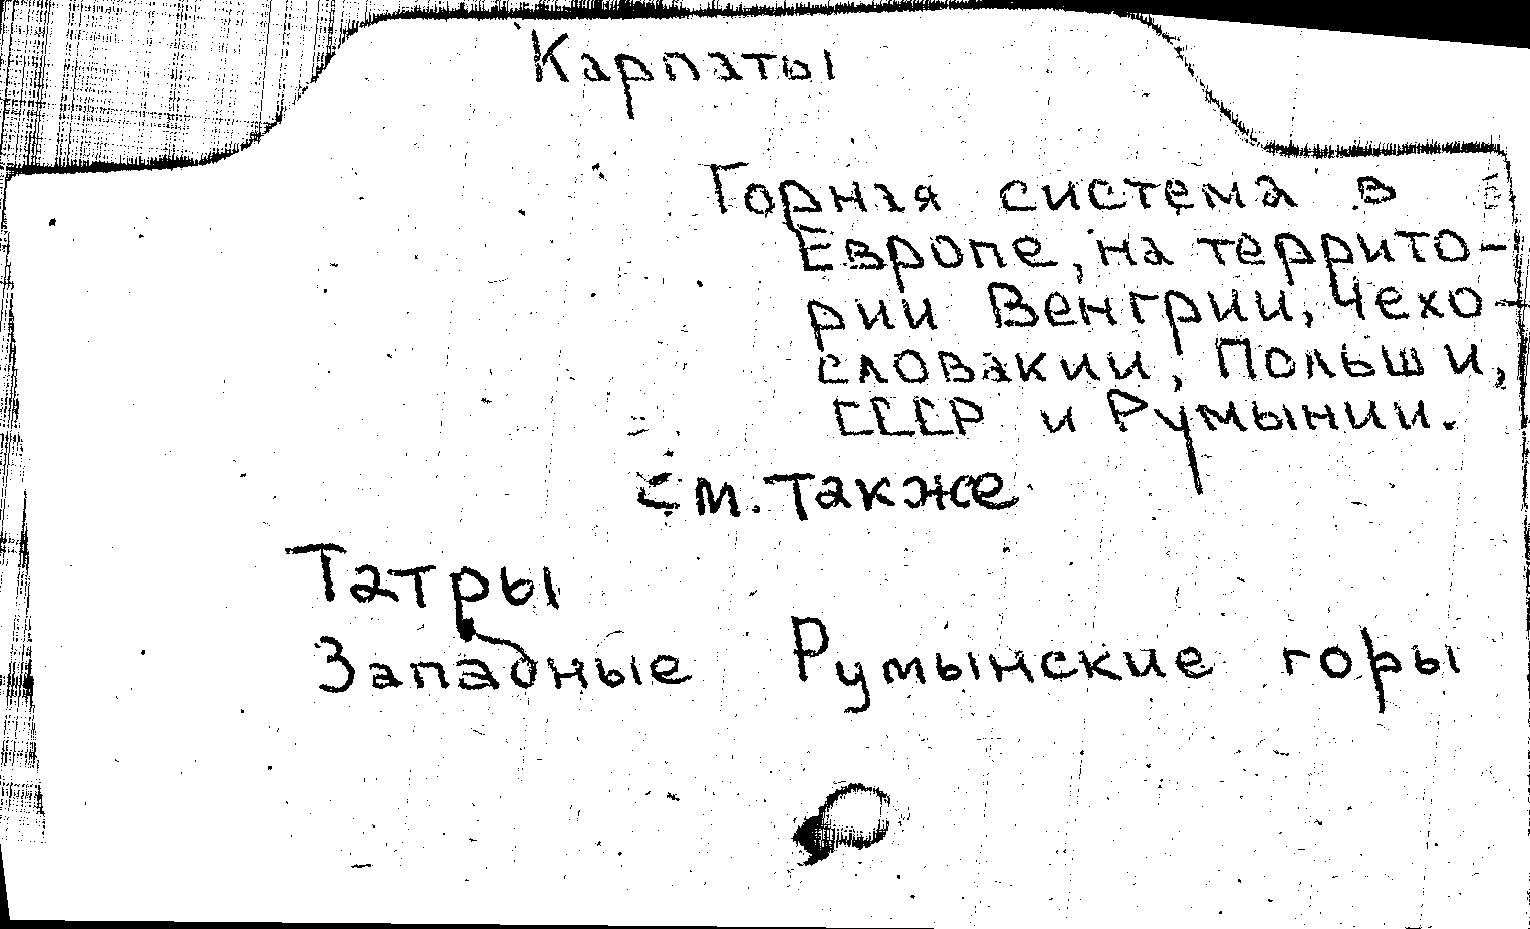 Карпаты
Горная система в
Европе, на террито-
рии Венгрии, Чехо-
словакии, Польши,
СССР и Румынии.
См. также
Татры
Западные Румынские горы